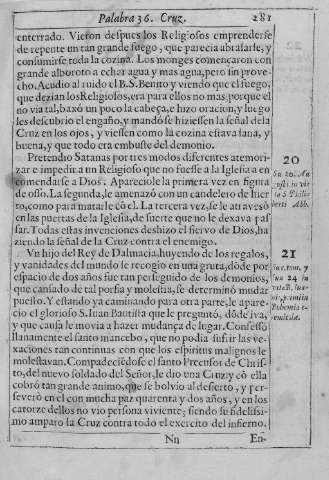 Palabra 36. Cruz. 281
enterrado. Vieron despues los Religiosos emprenderse
de repente vn tan grande fuego, que parecia abrasarse, y
consumirse toda la cozina. Los monges començaron con
grande alboroto a echar agua y mas agua, pero sin prove-
cho. Acudio al ruido el B. S. Benito y viendo que el fuego,
que dezian los Religiosos, era para ellos no mas, porque el
no via tal, baxò un poco la cabeça, e hizo oracion, y luego
les descubrio el engaño, y mandòse hiziessen la señal de la
Cruz en los ojos, y viessen como la cozina estava sana, y
buena, y que todo era embuste del demonio.
Pretendio Satanas por tres modos diferentes atemori-
zar e impedir a un Religioso que no fuesse a la Iglesia a en
comendarse a Dios. Apareciole la primera vez en figura
de osso. La segunda, le amenazò con un candelero de hier-
ro, como para matarle cõ el. La tercera vez, se le atravesò
en las puertas de la Iglesia, de suerte que no le dexava pas
sar. Todas estas invenciones deshizo el siervo de Dios, ha
ziendo la señal de la Cruz contra el enemigo.
20
Su 20. Au
gosti. in vit
a S. Phili-
berti Abb.
Un hijo del Rey de Dalmacia, huyendo de los regalos,
y vanidades del mundo se recogio en una gruta, dòde por
espacio de dos años fue tan perseguido de los demonios,
que cansado de tal porfia y molestia, se determinò mudar
puesto. Y estando ya caminando para otra parte, le apare-
cio el glorioso S. Juan Bautista que le preguntó, dõde iva,
y que causa le movia a hazer mudança de lugar. Confessò
llanamente el santo mancebo, que no podia sufrir las ve-
xaciones tan continuas con que los espiritus malignos le
molestavan. Compadeciòdose el santo Precursor de Chris-
to, del nuevo soldado del Señor, le dio una Cruz, y cò ella
cobrò tan grande animo, que se bolvio al desierto, y per-
severò en el con mucha paz quarenta y dos años, y en los
catorze dellos no vio persona viviente; siendo su fidelissi-
mo amparo la Cruz contra todo el exercito del infierno.
21
Nn En-